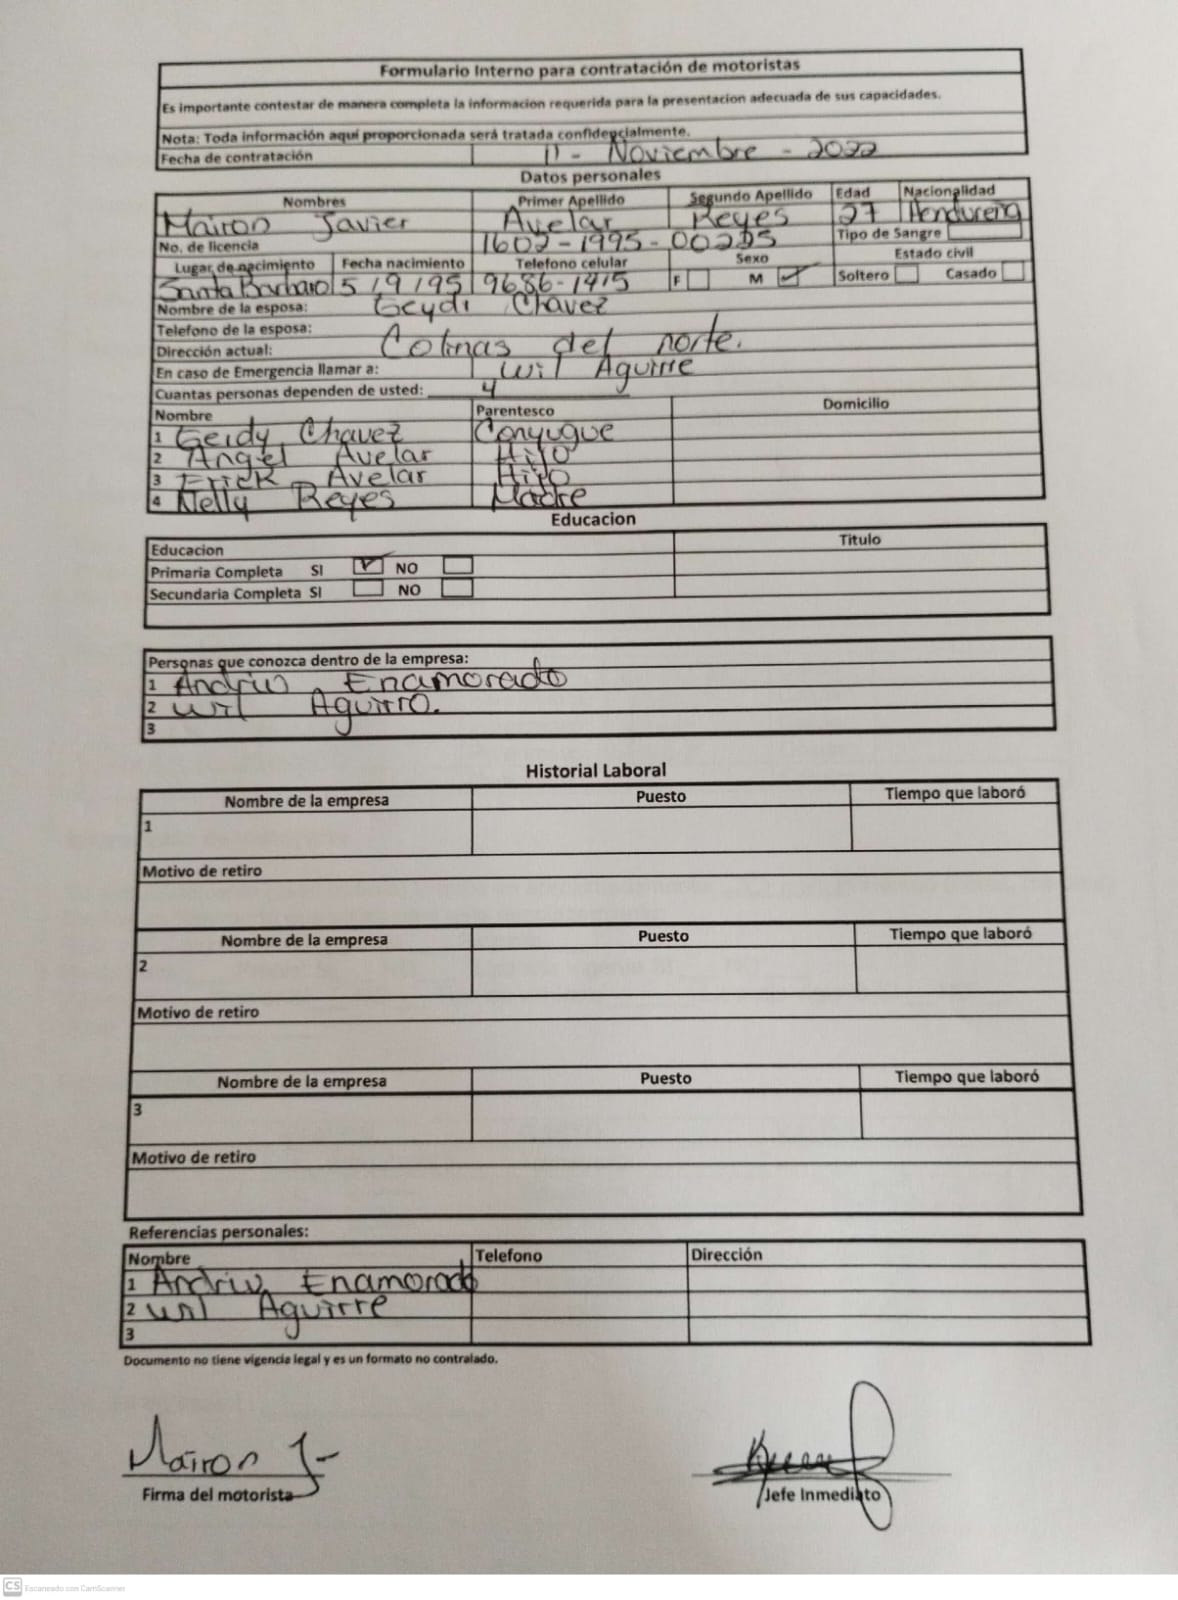 Formulario Interno para contratación de motoristas
Es importante contestar de manera completa la informacion requerida para la presentacion adecuada de sus capacidades.
Nota: Toda información aquí proporcionada será tratada confidencialmente.
Fecha de contratación 11 - Noviembre - 2022
Datos personales
Nombres Primer Apellido Segundo Apellido Edad Nacionalidad
Mairon Javier Avelar Reyes 27 Hondureña
No. de licencia 1602-1995-00205 Tipo de Sangre
Lugar de nacimiento Fecha nacimiento Telefono celular Sexo Estado civil
Santa Barbara 5/9/95 9686-1415 F M ✓ Soltero Casado
Nombre de la esposa: Geydi Chavez
Telefono de la esposa:
Dirección actual: Colinas del norte.
En caso de Emergencia llamar a: Wil Aguirre
Cuantas personas dependen de usted: 4
Nombre Parentesco Domicilio
1 Geidy Chavez Conyugue
2 Angel Avelar Hijo
3 Erick Avelar Hijo
4 Nelly Reyes Madre
Educacion
Educacion Titulo
Primaria Completa SI ✓ NO
Secundaria Completa SI NO
Personas que conozca dentro de la empresa:
1 Andriu Enamorado
2 Wil Aguirro.
3
Historial Laboral
Nombre de la empresa Puesto Tiempo que laboró
1
Motivo de retiro
Nombre de la empresa Puesto Tiempo que laboró
2
Motivo de retiro
Nombre de la empresa Puesto Tiempo que laboró
3
Motivo de retiro
Referencias personales:
Nombre Telefono Dirección
1 Andriu Enamorado
2 Wil Aguirre
3
Documento no tiene vigencia legal y es un formato no contralado.
Mairon J
Firma del motorista Jefe Inmediato
CS Escaneado con CamScanner